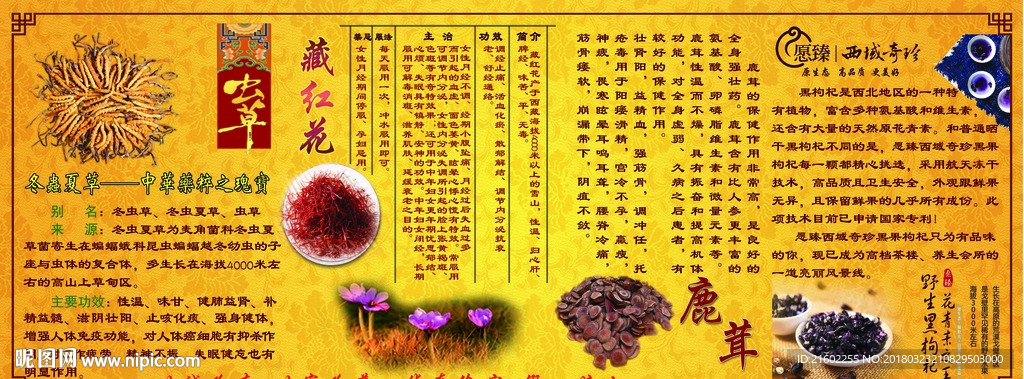 虫草
冬蟲夏草——中華藥粹之瑰寶
别 名：冬虫草、冬虫夏草、虫草
来 源：冬虫夏草为麦角菌科冬虫夏
草菌寄生在蝙蝠蛾科昆虫蝙蝠越冬幼虫的子
座与虫体的复合体，多生长在海拔4000米左
右的高山上草甸区。
主要功效：性温、味甘、健肺益肾、补
精益髓、滋阴壮阳、止咳化痰、强身健体，
增强人体免疫功能，对人体癌细胞有抑杀作
精神不振、失眠健忘也有
明显作用。
藏红花
简介
藏红花产于西藏海拔4000米以上的雪山，性温，归心肝、
脾经，味苦、平、无毒。
功效
调经止痛、活血化瘀、散郁解结、调节内分泌抗衰
老、舒经通络。
主治
女性月经不调、经期小腹坠痛、月经出血过多
服用可解毒消斑、滋养肌肤、延缓衰老之功效。
服法
每天服用一次，冲水服用即可。
禁忌
女性月经期间停服、孕妇忌用。
鹿茸
鹿茸的保健作用非常高，是良的
全身强壮药。鹿茸含有比人参更丰富的
氨基酸、卵磷脂维生素和微量元素等。
鹿茸性温而不燥，具有振奋和提高机体
功能，对全身虚弱、久病之后患者，有
较好的保健作用。
壮肾阳，益精血，强筋骨，调冲任，托
疮毒用于阳痿滑精，宫冷不孕，羸瘦，
神疲，畏寒眩晕耳鸣耳聋，腰脊冷痛，
筋骨痿软，崩漏带下，阴疽不敛。
愿臻 西域奇珍
原生态 高品质 更美好
黑枸杞是西北地区的一种特
有植物，富含多种氨基酸和维生素，
还含有大量的天然原花青素。和普通晒
干黑枸杞不同的是，愿臻西域奇珍黑果
枸杞每一颗都精心挑选，采用航天冻干
技术，高品质且卫生安全，外观跟鲜果
无异，且保留鲜果的几乎所有成份。此
项技术目前已申请国家专利！
愿臻西域奇珍黑果枸杞只为有品味
的你，现已成为高档茶楼、养生会所的
一道亮丽风景线。
野生黑枸杞
花青素之王
生长在高原的荒漠戈壁
是戈壁里罕见稀有的野果
海拔3000米左右
昵图网 www.nipic.com
ID:21602255 NO:20180323210829503000